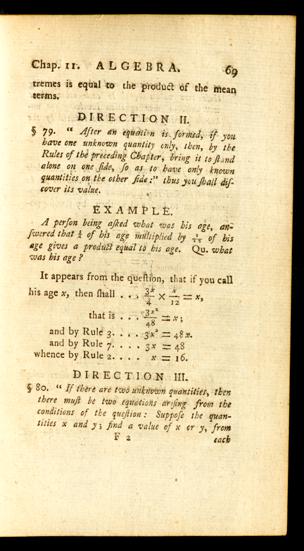 Chap. 11. ALGEBRA. 69
tremes is equal to the product of the mean
terms.
DIRECTION II.
§ 79. “ After an equation is formed, if you
have one unknown quantity only, then, by the
Rules of the preceding Chapter, bring it to stand
alone on one side, so as to have only known
quantities on the other side:” thus you shall dis-
cover its value.
EXAMPLE.
A person being asked what was his age, an-
swered that ¾ of his age multiplied by 1/12 of his
age gives a product equal to his age. Qu. what
was his age?
It appears from the question, that if you call
his age x, then shall ... 3x/4 × x/12 = x,
that is .... 3x²/48 = x;
and by Rule 3.... 3x² = 48x.
and by Rule 7.... 3x = 48
whence by Rule 2.... x = 16.
DIRECTION III.
§ 80. “ If there are two unknown quantities, then
there must be two equations arising from the
conditions of the question: Suppose the quan-
tities x and y; find a value of x or y, from
F 2 each